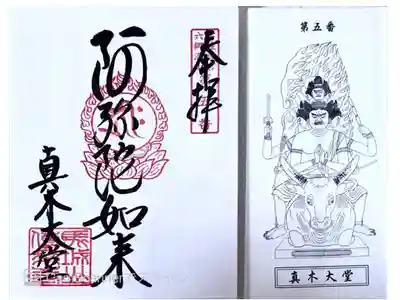 奉拝
阿弥陀如来
真木大堂
第五番
真木大堂